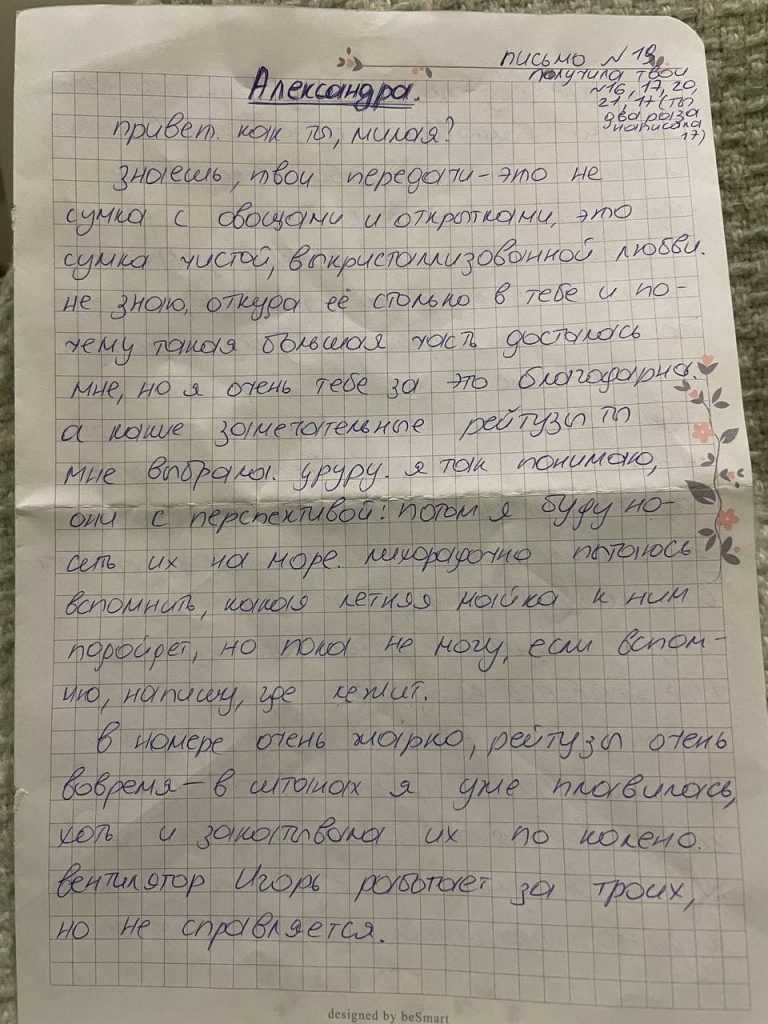 письмо №19
получила твои
№16, 17, 20,
21, 17 (ты
два раза
написала
17)
Александра.
привет. как ты, милая?
знаешь, твои передачи - это не
сумка с овощами и открытками, это
сумка чистой, выкристаллизованной любви.
не знаю, откуда её столько в тебе и по-
чему такая большая часть досталась
мне, но я очень тебе за это благодарна.
а какие замечательные рейтузы ты
мне выбрала. уруру. я так понимаю,
они с перспективой: потом я буду но-
сить их на море. лихорадочно пытаюсь
вспомнить, какая летняя майка к ним
подойдет, но пока не могу, если вспом-
ню, напишу, где лежит.
в номере очень жарко, рейтузы очень
вовремя - в штанах я уже плавилась,
хоть и закатывала их по колено.
вентилятор Игорь работает за троих,
но не справляется.
designed by beSmart